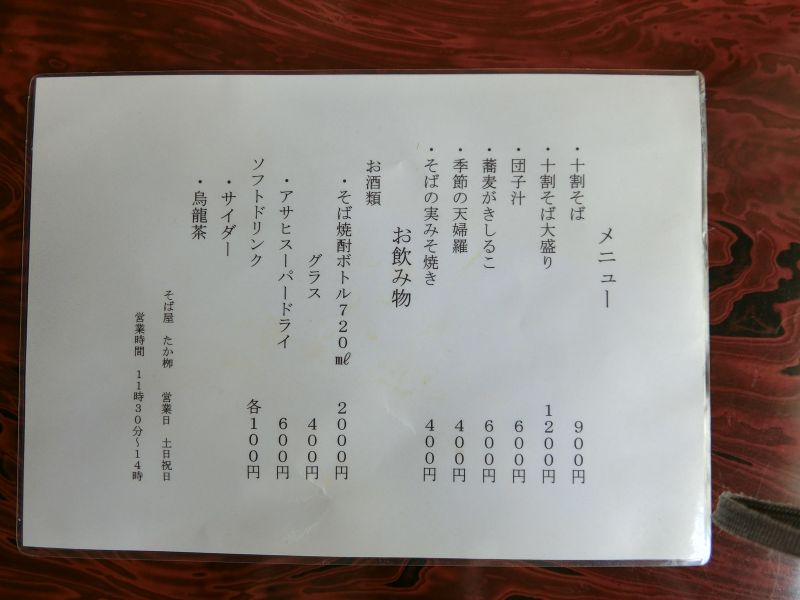 メニュー
・十割そば 900円
・十割そば大盛り 1200円
・団子汁 600円
・蕎麦がきしるこ 600円
・季節の天婦羅 400円
・そばの実みそ焼き 400円
お飲み物
お酒類
・そば焼酎ボトル720㎖ 2000円
グラス 400円
・アサヒスーパードライ 600円
ソフトドリンク 各100円
・サイダー
・烏龍茶
そば屋 たか栁 営業日 土日祝日
営業時間 11時30分~14時